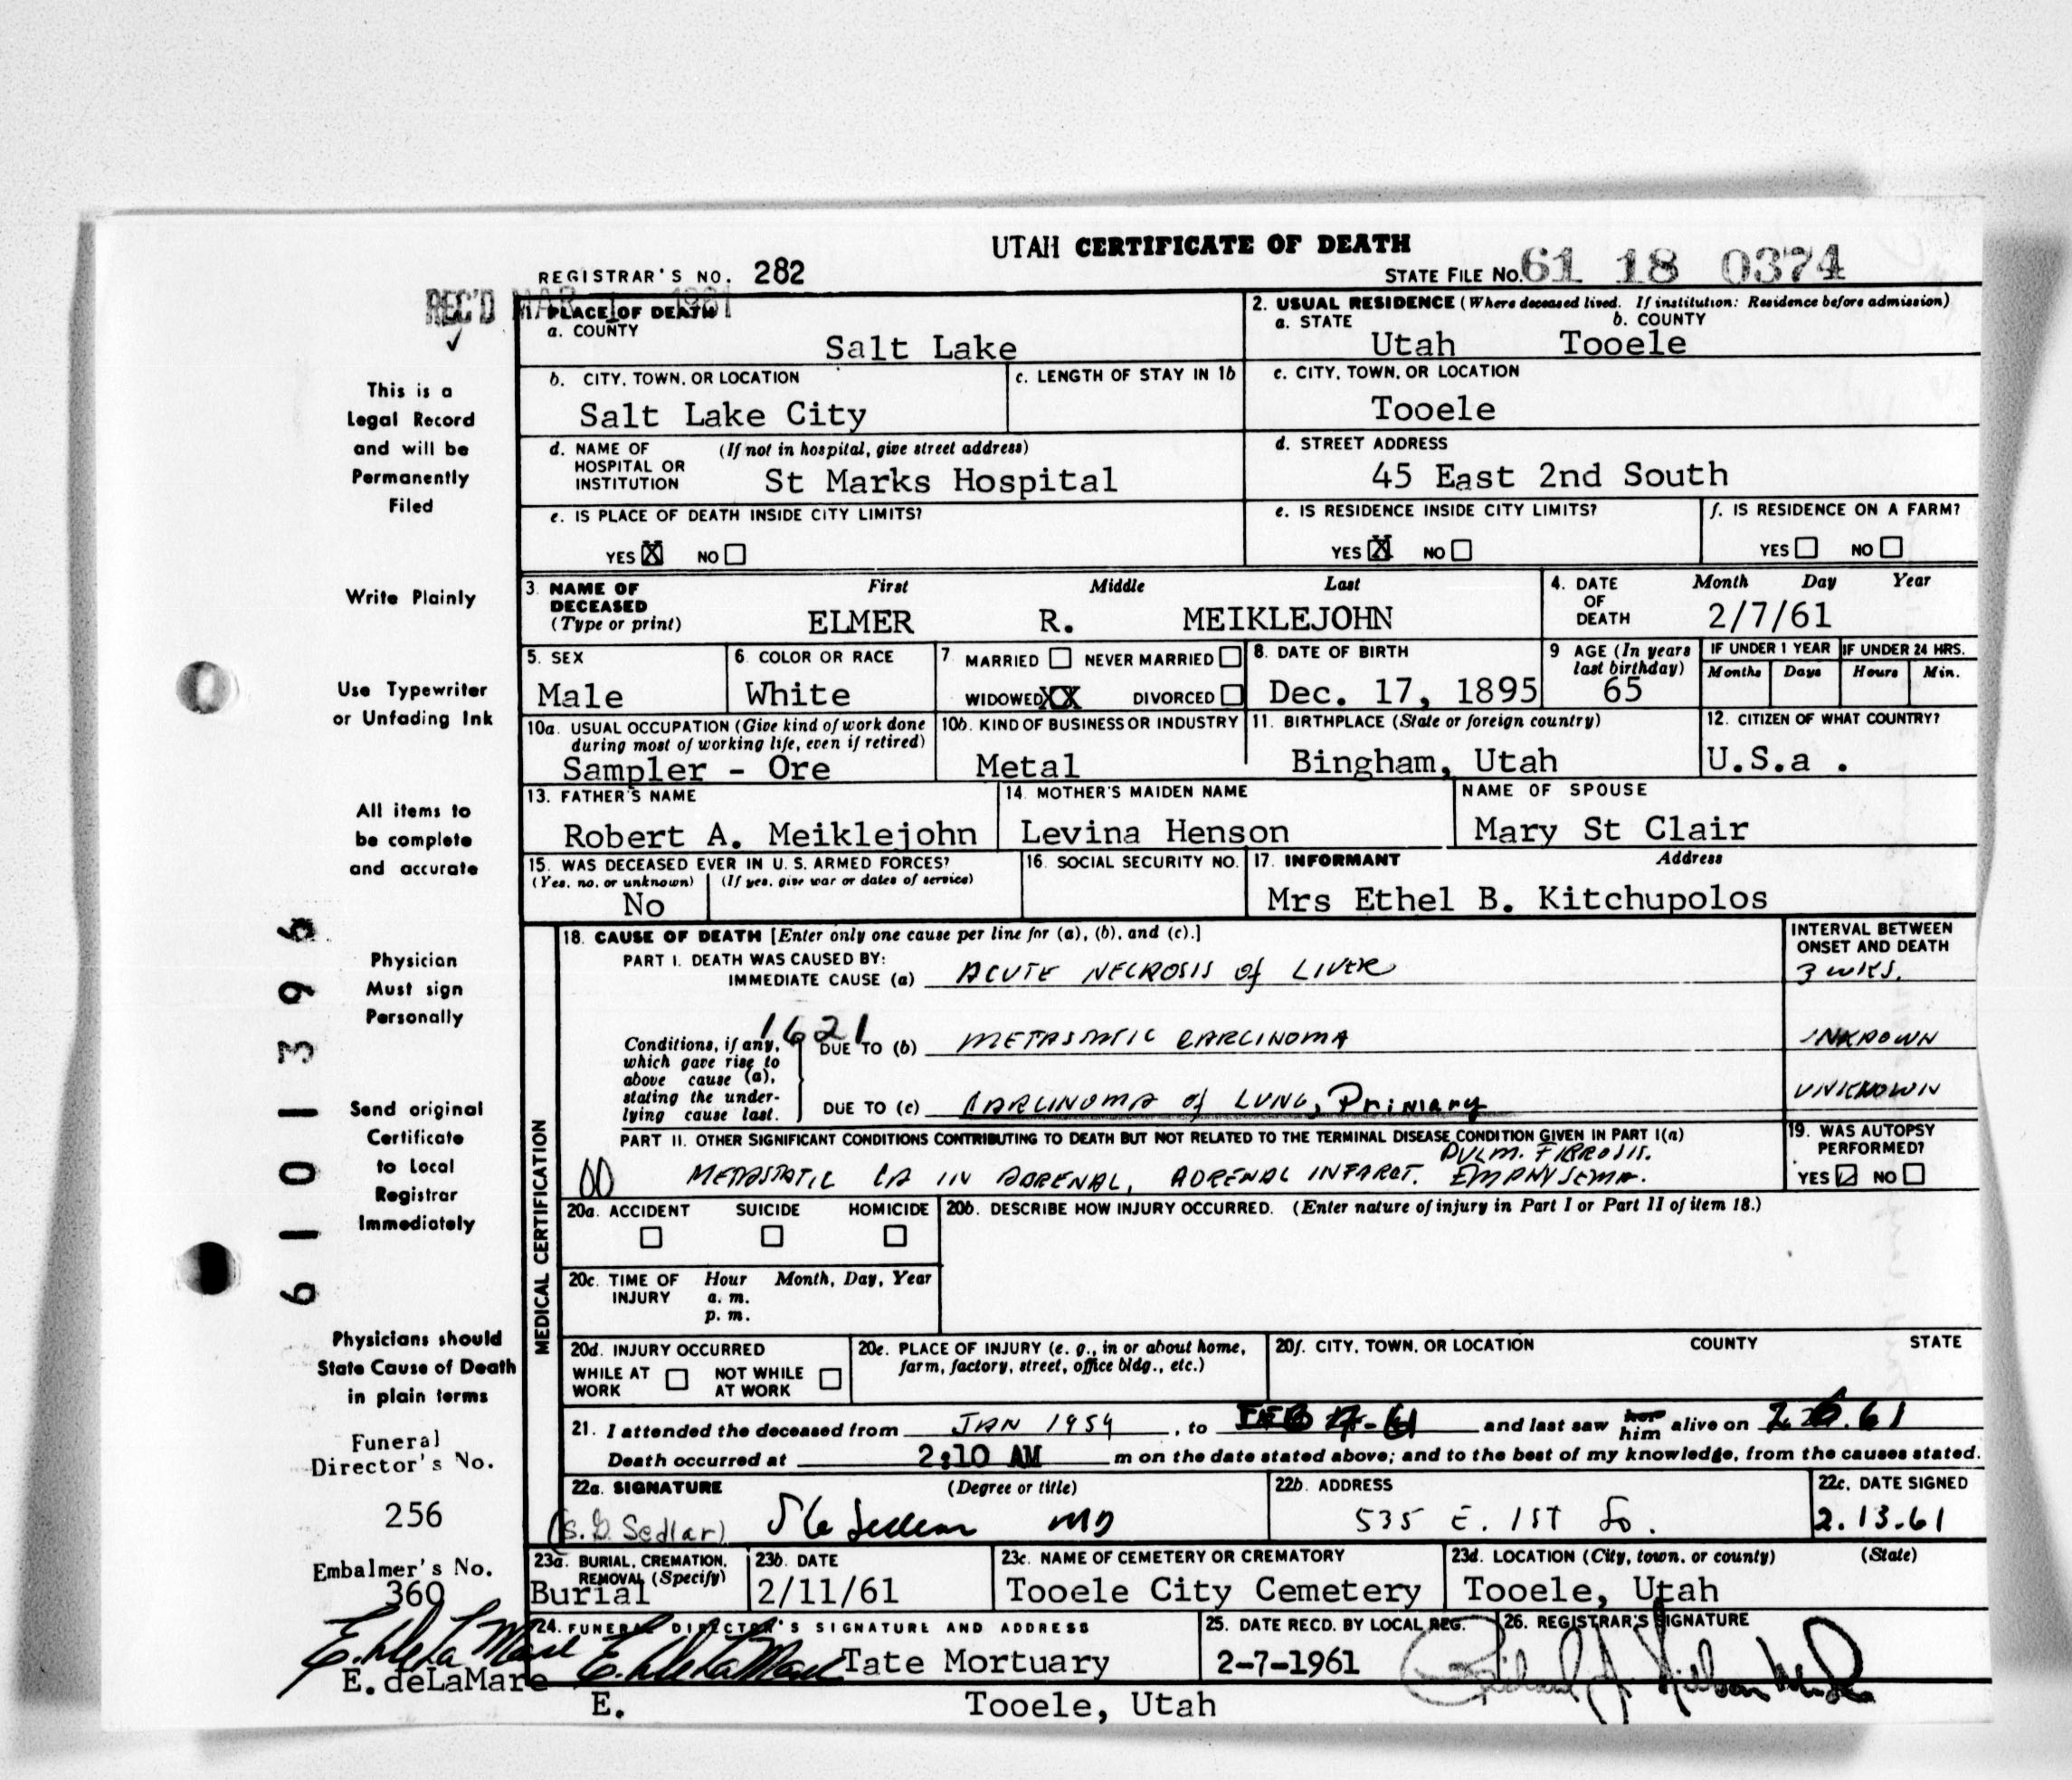 UTAH CERTIFICATE OF DEATH
REGISTRAR'S NO. 282
STATE FILE NO. 61 18 0374
REC'D MAR 1 1961
✓
This is a
Legal Record
and will be
Permanently
Filed
Write Plainly
Use Typewriter
or Unfading Ink
All items to
be complete
and accurate
Physician
Must sign
Personally
Send original
Certificate
to Local
Registrar
Immediately
Physicians should
State Cause of Death
in plain terms
Funeral
Director's No.
256
Embalmer's No.
360
E. deLaMare
E. deLaMare
61 01 396
1. PLACE OF DEATH
a. COUNTY
Salt Lake
2. USUAL RESIDENCE (Where deceased lived. If institution: Residence before admission)
a. STATE b. COUNTY
Utah Tooele
b. CITY, TOWN, OR LOCATION
Salt Lake City
c. LENGTH OF STAY IN 1b
c. CITY, TOWN, OR LOCATION
Tooele
d. NAME OF HOSPITAL OR INSTITUTION (If not in hospital, give street address)
St Marks Hospital
d. STREET ADDRESS
45 East 2nd South
e. IS PLACE OF DEATH INSIDE CITY LIMITS?
YES X NO
e. IS RESIDENCE INSIDE CITY LIMITS?
YES X NO
f. IS RESIDENCE ON A FARM?
YES NO
3. NAME OF DECEASED (Type or print) First Middle Last
ELMER R. MEIKLEJOHN
4. DATE OF DEATH Month Day Year
2/7/61
5. SEX
Male
6. COLOR OR RACE
White
7 MARRIED NEVER MARRIED
WIDOWED XX DIVORCED
8. DATE OF BIRTH
Dec. 17, 1895
9 AGE (In years last birthday)
65
IF UNDER 1 YEAR
Months Days
IF UNDER 24 HRS.
Hours Min.
10a. USUAL OCCUPATION (Give kind of work done during most of working life, even if retired)
Sampler - Ore
10b. KIND OF BUSINESS OR INDUSTRY
Metal
11. BIRTHPLACE (State or foreign country)
Bingham, Utah
12. CITIZEN OF WHAT COUNTRY?
U.S.a .
13. FATHER'S NAME
Robert A. Meiklejohn
14. MOTHER'S MAIDEN NAME
Levina Henson
NAME OF SPOUSE
Mary St Clair
15. WAS DECEASED EVER IN U. S. ARMED FORCES?
(Yes, no, or unknown) (If yes, give war or dates of service)
No
16. SOCIAL SECURITY NO.
17. INFORMANT Address
Mrs Ethel B. Kitchupolos
MEDICAL CERTIFICATION
18. CAUSE OF DEATH [Enter only one cause per line for (a), (b), and (c).]
INTERVAL BETWEEN ONSET AND DEATH
PART I. DEATH WAS CAUSED BY:
IMMEDIATE CAUSE (a) ACUTE NECROSIS of LIVER 3 WKS.
1621
Conditions, if any, which gave rise to above cause (a), stating the underlying cause last.
DUE TO (b) METASTATIC CARCINOMA UNKNOWN
DUE TO (c) CARCINOMA of LUNG, Primary UNKNOWN
PART II. OTHER SIGNIFICANT CONDITIONS CONTRIBUTING TO DEATH BUT NOT RELATED TO THE TERMINAL DISEASE CONDITION GIVEN IN PART I(a)
PULM. FIBROSIS.
METASTATIC CA IN ADRENAL, ADRENAL INFARCT. EMPHYSEMA.
19. WAS AUTOPSY PERFORMED?
YES NO
20a. ACCIDENT SUICIDE HOMICIDE
20b. DESCRIBE HOW INJURY OCCURRED. (Enter nature of injury in Part I or Part II of item 18.)
20c. TIME OF INJURY Hour Month, Day, Year
a. m.
p. m.
20d. INJURY OCCURRED
WHILE AT WORK NOT WHILE AT WORK
20e. PLACE OF INJURY (e. g., in or about home, farm, factory, street, office bldg., etc.)
20f. CITY, TOWN, OR LOCATION COUNTY STATE
21. I attended the deceased from JAN 1959, to FEB 7-61 and last saw her him alive on 2.6.61
Death occurred at 2:10 AM m on the date stated above; and to the best of my knowledge, from the causes stated.
22a. SIGNATURE (Degree or title)
(S. G. Sedlar) S G Sedlar MD
22b. ADDRESS
535 E. 1ST So.
22c. DATE SIGNED
2.13.61
23a. BURIAL, CREMATION, REMOVAL (Specify)
Burial
23b. DATE
2/11/61
23c. NAME OF CEMETERY OR CREMATORY
Tooele City Cemetery
23d. LOCATION (City, town, or county) (State)
Tooele, Utah
24. FUNERAL DIRECTOR'S SIGNATURE AND ADDRESS
E. deLaMare Tate Mortuary
E. Tooele, Utah
25. DATE RECD. BY LOCAL REG.
2-7-1961
26. REGISTRAR'S SIGNATURE